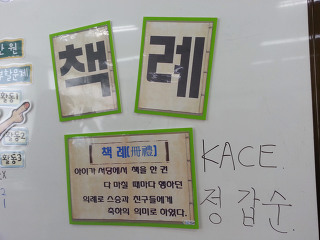 책 례
책 례(冊禮)
아이가 서당에서 책을 한 권
다 마칠 때마다 행하던
의례로 스승과 친구들에게
축하의 의미로 하였다.
KACE.
정 갑 순.
안 원
활동1
활동3